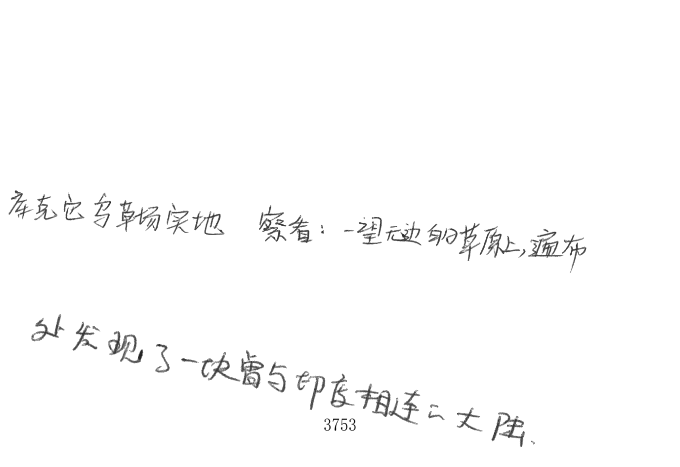 库克它乌草场实地 察看：一望无边的草原上,遍布
处发现了一块曾与印度相连的大陆.
3753